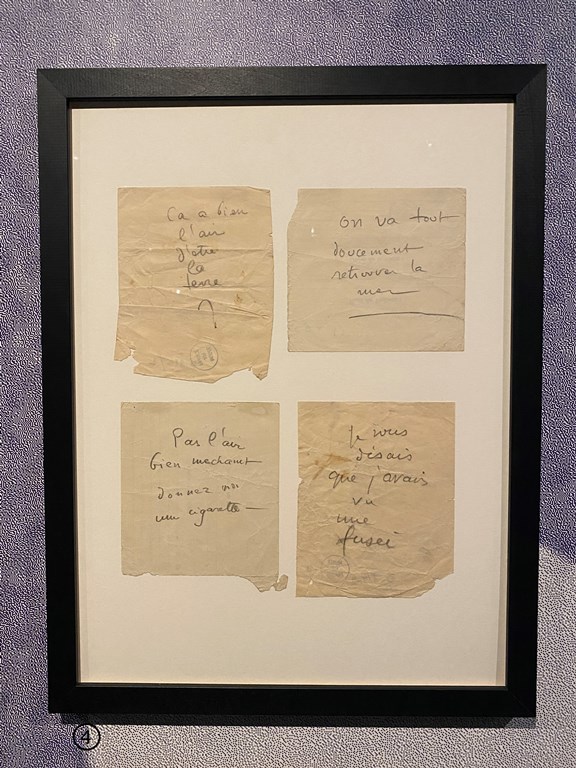 Ca a bien
l'air
d'etre
la
terre
?
On va tout
doucement
retrouver la
mer
Pas l'air
bien mechant
donnez moi
une cigarette
Je vous
disais
que j'avais
vu
une
fusei
4